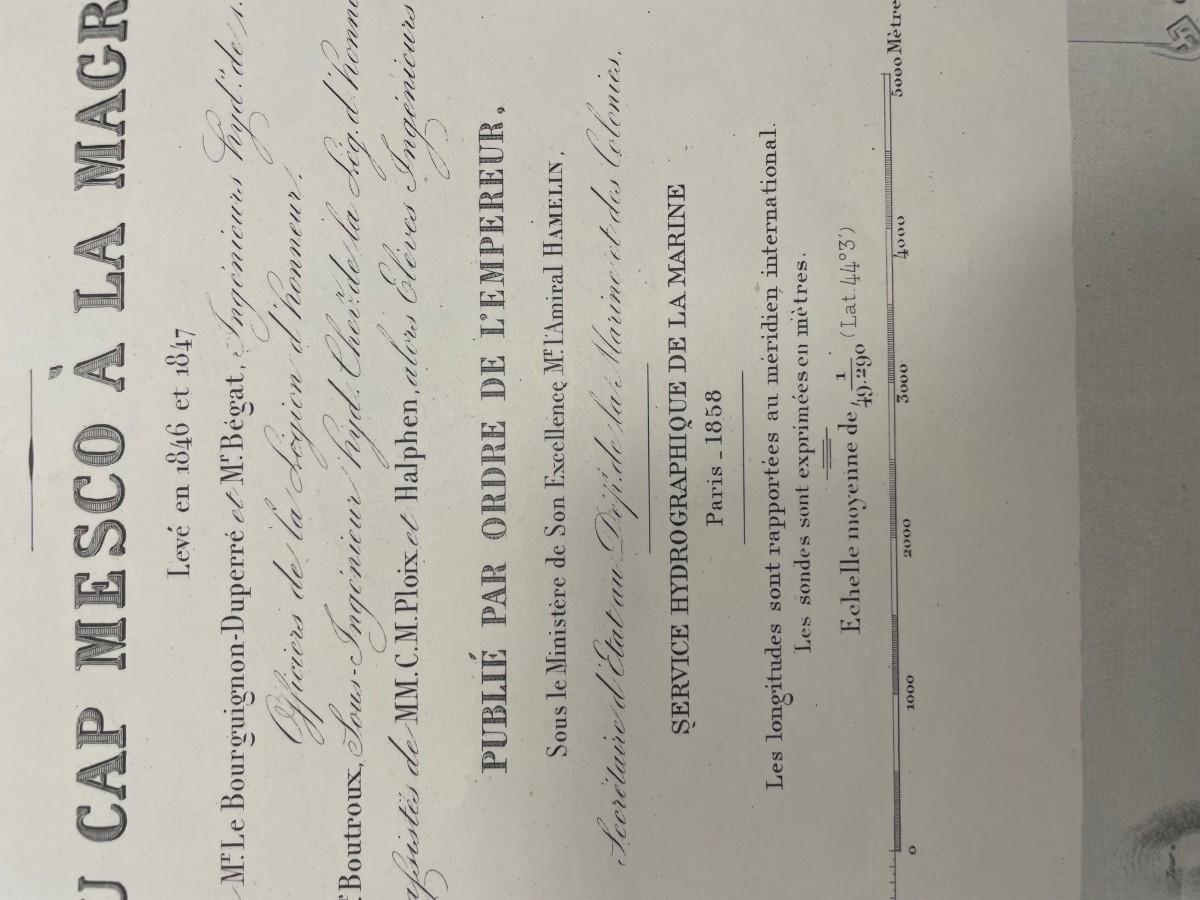 U CAP MESCO À LA MAGR
Levé en 1846 et 1847
Mr. Le Bourguignon-Duperré et Mr. Bégat, Ingénieurs hyd.rs de 1.
Officiers de la Légion d'honneur.
r Boutroux, Sous-Ingénieur hyd. Chev.r de la Lég. d'honne
assistés de MM. C. M. Ploix et Halphen, alors Elèves Ingénieurs
PUBLIÉ PAR ORDRE DE L'EMPEREUR,
Sous le Ministère de Son Excellence Mr. l'Amiral HAMELIN,
Secrétaire d'Etat au Dép.t de la Marine et des Colonies.
SERVICE HYDROGRAPHIQUE DE LA MARINE
Paris _ 1858
Les longitudes sont rapportées au méridien international.
Les sondes sont exprimées en mètres.
Echelle moyenne de 1/49.290 (Lat. 44°3')
0 1000 2000 3000 4000 5000 Mètre